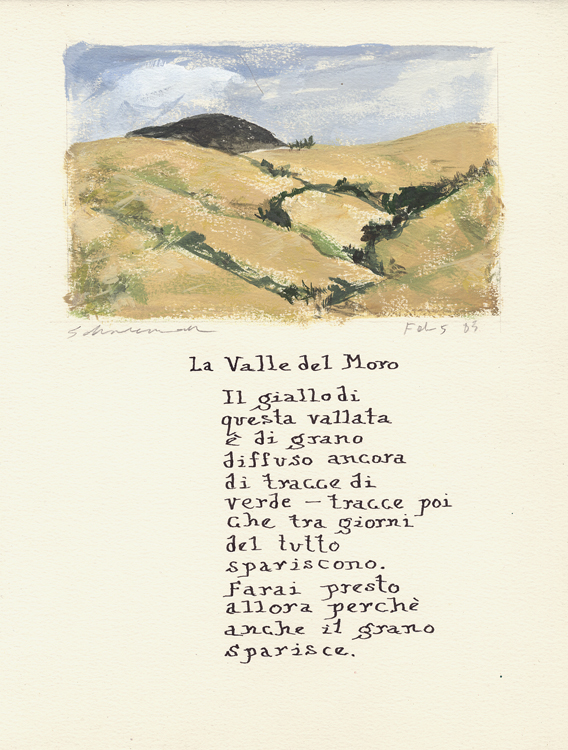 La Valle del Moro
Il giallo di
questa vallata
è di grano
diffuso ancora
di tracce di
verde — tracce poi
che tra giorni
del tutto
spariscono.
Farai presto
allora perchè
anche il grano
sparisce.